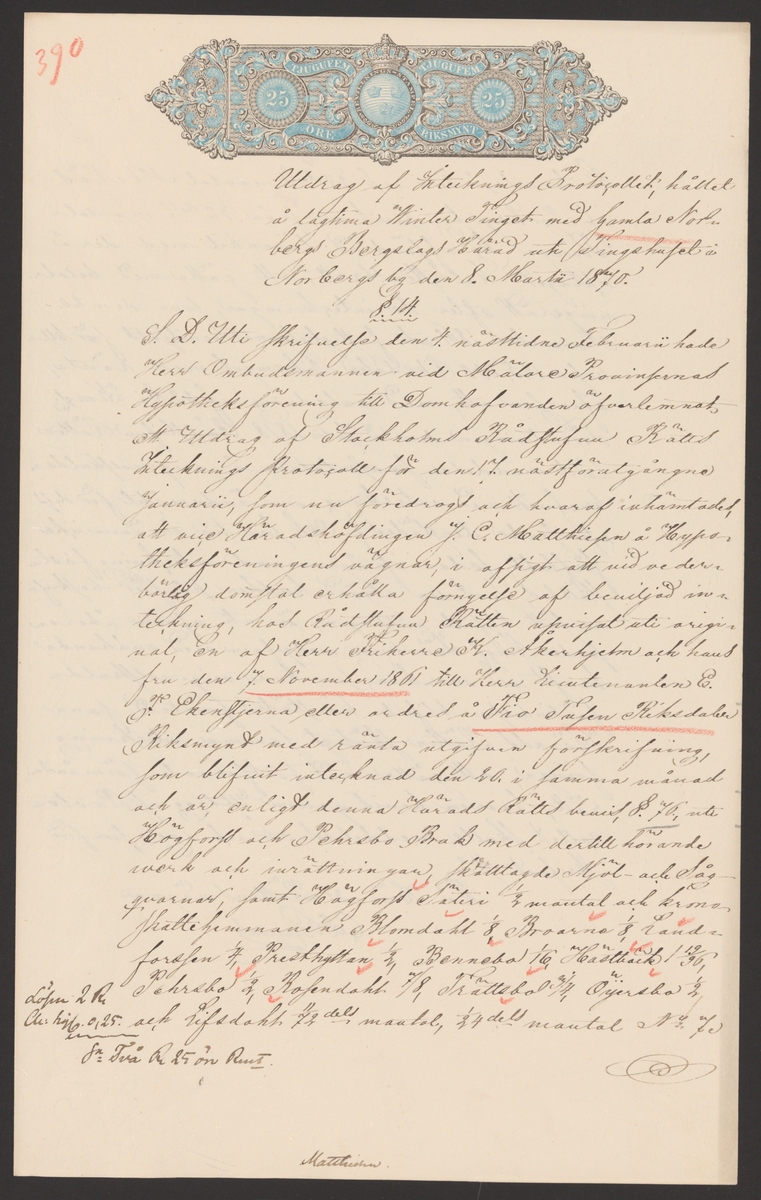 390
TJUGUFEM TJUGUFEM
25 25
ÖRE RIKSMYNT
Utdrag af Intecknings Protocollet, hållet
å lagtima Winter Tinget med Gamla Nor-
bergs Bergslags Härad uti Tingshuset i
Norbergs by den 8. Martii 1870.
§. 14.
S. D. Uti skrifvelse den 4. nästlidne Februarii hade
Herr Ombudsmannen vid Mälare Provinsernas
Hypotheksförening till Domhafvanden öfverlemnat
Ett Utdrag af Stockholms Rådstufvu Rätts
Intecknings Protocoll för den 17. nästförutgångne
Januarii, som nu föredrogs och hvaraf inhämtades,
att vice Häradshöfdingen J. C. Matthiesen å Hypo-
theksföreningens vägnar, i afsigt att vid veder-
börlig domstol erhålla förnyelse af beviljad in-
teckning, hos Rådstufvu Rätten upvisat uti origi-
nal, en af Herr Friherre K. Åkerhjelm och hans
fru den 7. November 1861 till Herr Lieutenanten E.
J. Ekenstjerna eller ordres å Tio Tusen Riksdaler
Riksmynt med ränta utgifven förskrifning,
som blifvit intecknad den 20. i samma månad
och år, enligt denna Härads Rätts bevis, §. 76, uti
Högfors och Pehrsbo Bruk med dertill hörande
werk och inrättningar, skattlagde Mjöl- och Såg-
qvarnar, samt Högfors Säteri 1/2 mantal och krono-
skattehemmanen Blomdahl 1/8, Broarne 1/8, Land-
forssen 1/4, Presthyttan 1/2, Bennebo 1/16, Hästbäck
Pehrsbo 1/2, Rosendahl Trättsbo Öijersbo 1/2,
och Lifsdahl dels mantal, 1/24 dels mantal No. 7 i
Lösen 2 R
0,25.
Sa Två R 25 öre Rmt.
Matthiesen.